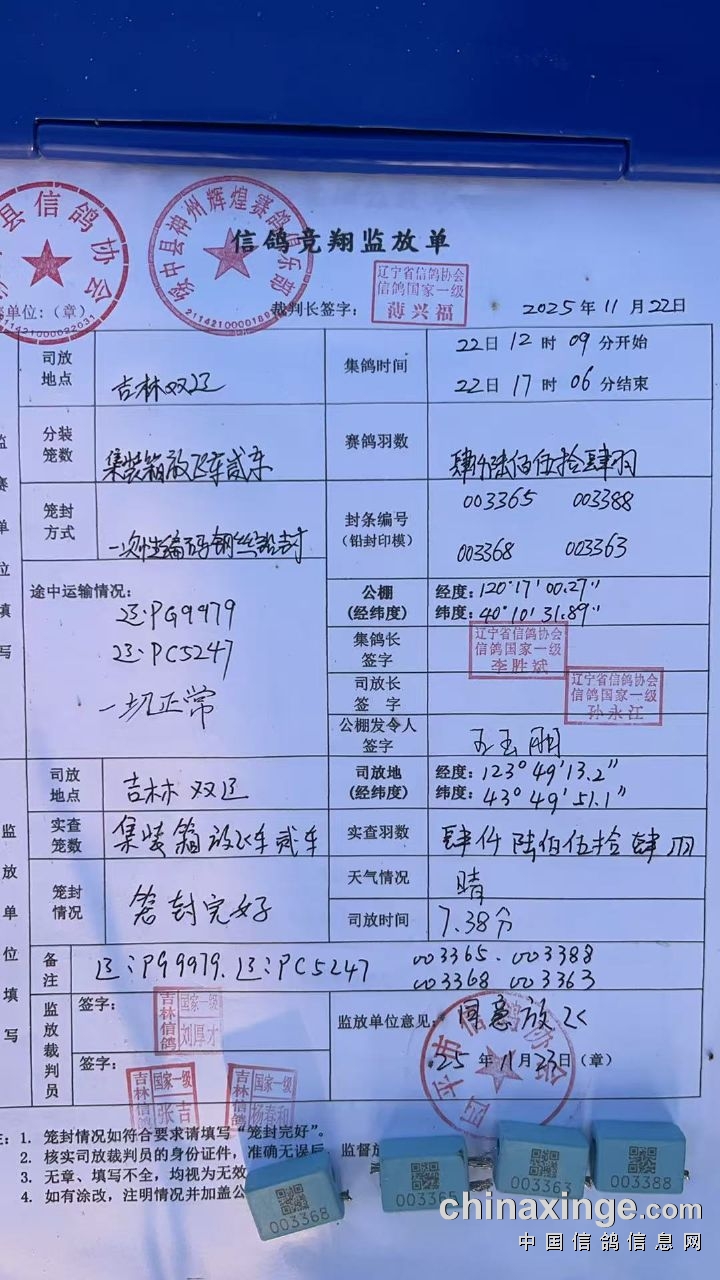 县信鸽协会
211421000022031
绥中县神州辉煌赛鸽俱乐部
2114210000189
信鸽竞翔监放单
单位:(章)
裁判长签字:
辽宁省信鸽协会
信鸽国家一级
薄兴福
2025年11月22日
司放地点
吉林双辽
集鸽时间
22日12时09分开始
22日17时06分结束
分装笼数
集装箱放飞车贰车
赛鸽羽数
肆仟陆佰伍拾肆羽
笼封方式
一次性编码钢丝铅封
封条编号
(铅封印模)
003365 003388
003368 003363
途中运输情况:
辽:PG9979
辽:PC5247
一切正常
公棚
(经纬度)
经度:120°17′00.27″
纬度:40°10′31.89″
集鸽长签字
辽宁省信鸽协会
信鸽国家一级
李胜斌
司放长签字
辽宁省信鸽协会
信鸽国家一级
孙永江
公棚发令人签字
王玉刚
赛单位填写
司放地点
吉林双辽
司放地
(经纬度)
经度:123°49′13.2″
纬度:43°49′51.1″
实查笼数
集装箱放飞车贰车
实查羽数
肆仟陆佰伍拾肆羽
笼封情况
笼封完好
天气情况
晴
司放时间
7.38分
备注
辽:PG9979.辽:PC5247
003365.003388
003368 003363
监放单位填写
监放裁判员
签字:
吉林信鸽
国家一级
刘厚才
签字:
吉林信鸽
国家一级
张吉
吉林信鸽
国家一级
杨春和
监放单位意见:
同意放飞
25年11月23日(章)
四平市信鸽协会
注:1. 笼封情况如符合要求请填写“笼封完好”。
2. 核实司放裁判员的身份证件,准确无误后,监督放
3. 无章、填写不全,均视为无效
4. 如有涂改,注明情况并加盖公
003368
003365
003363
003388
chinaxinge.com
中国信鸽信息网